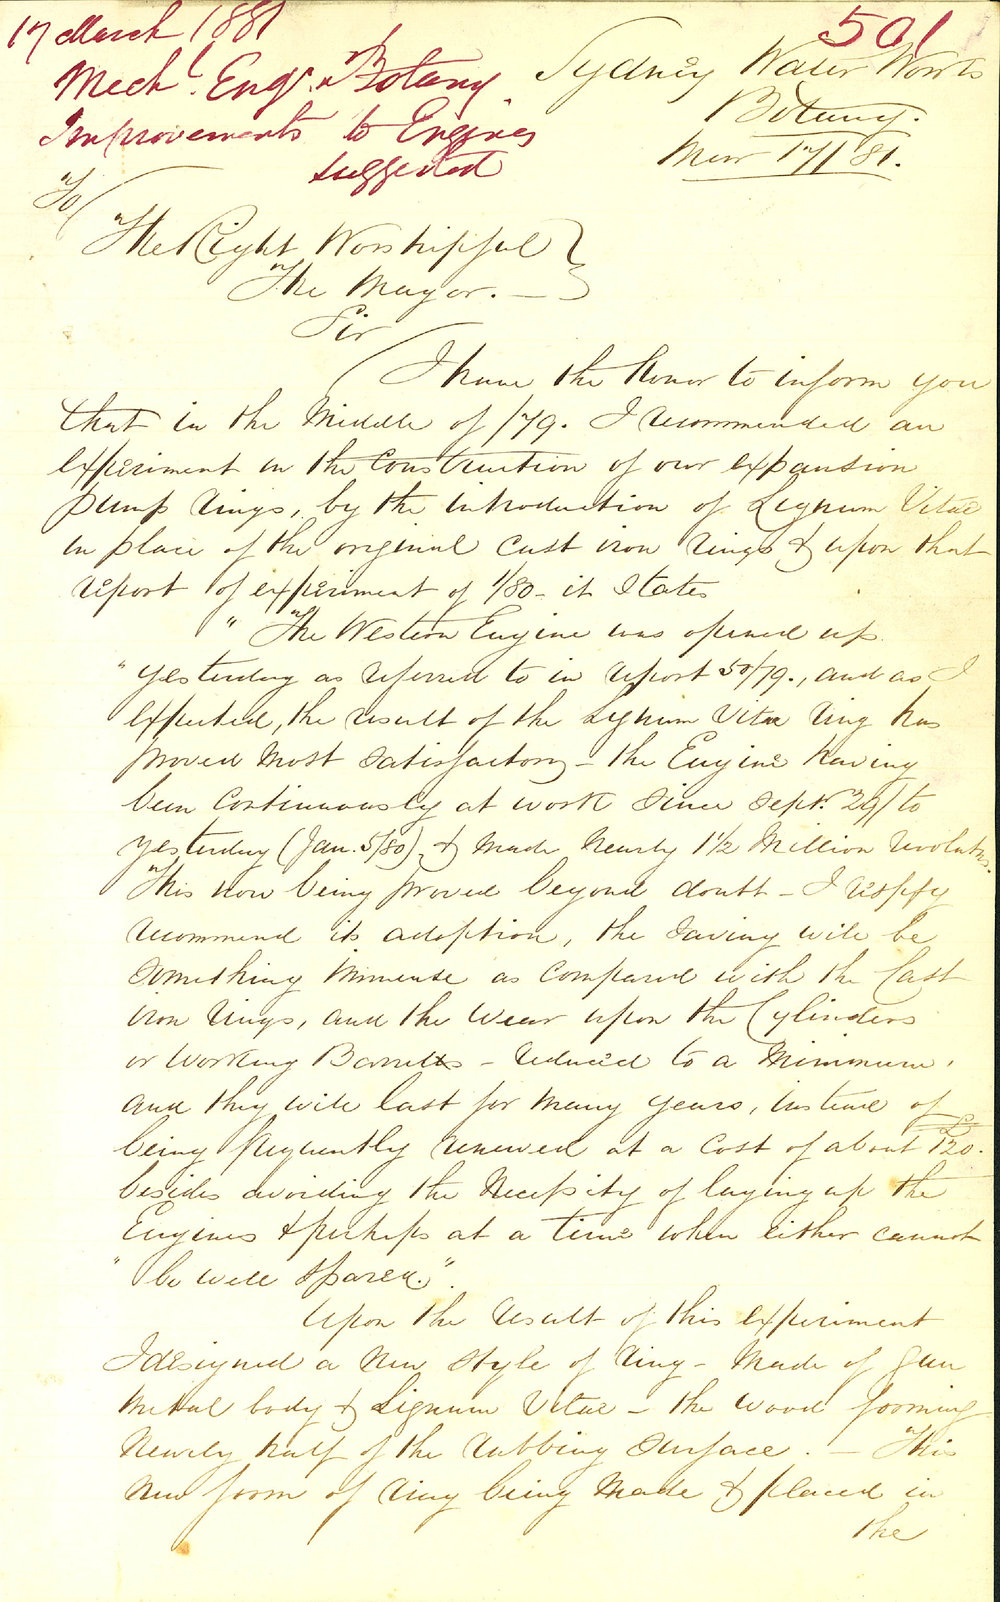 17 March 1881
501
Mech.l Eng.r Botany
Improvements to Engines
suggested
Sydney Water Works
Botany.
Mar 17/81.
To
The Right Worshipful
The Mayor. —
Sir
I have the honor to inform you
that in the Middle of /79. I recommended an
experiment in the construction of our expansion
pump rings, by the introduction of Lignum Vitae
in place of the original cast iron rings & upon that
report of experiment of 1/80 - it States
" The Western Engine was opened up
" yesterday as referred to in report 50/79., and as I
expected, the result of the Lignum Vitae ring has
proved most satisfactory - the Engine having
been continuously at work since Sept. 29/ to
yesterday (Jan. 5/80), & made nearly 1½ Million revolutns.
This now being proved beyond doubt - I respfy
recommend its adoption, the saving will be
something immense as compared with the Cast
iron rings, and the wear upon the Cylinders
or Working Barrells - reduced to a Minimum,
and they will last for many years, instead of
being frequently renewed at a cost of about £120.
besides avoiding the Necessity of laying up the
Engines & perhaps at a time when either cannot
" be well spared.".
Upon the result of this experiment
I designed a new style of ring - made of gun
metal body & Lignum Vitae - the wood forming
nearly half of the rubbing surface. — This
new form of ring being made & placed in
the